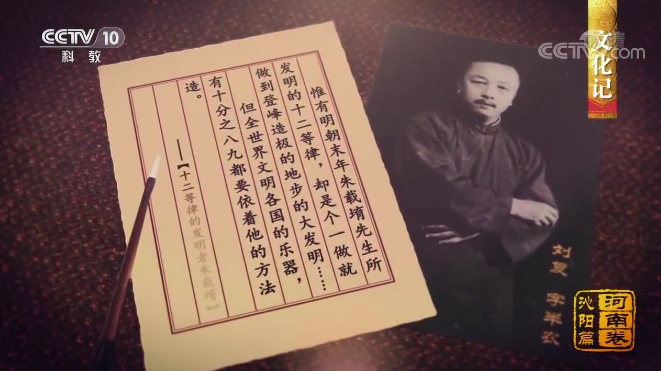 CCTV 10
科教
CCTV com
文化记
惟有明朝末年朱载堉先生所
发明的十二等律，却是个一做就
做到登峰造极的地步的大发明……
但全世界文明各国的乐器，
有十分之八九都要依着他的方法
造。
——【十二等律的发明者朱载堉』
刘复 字半农
河南卷
沁阳篇